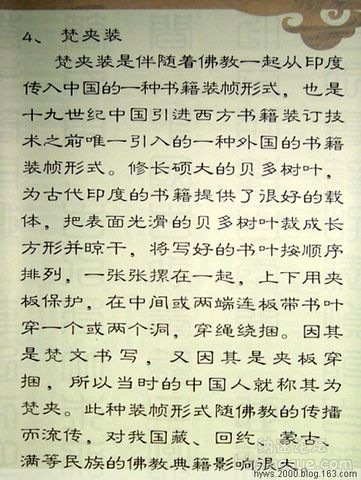 4、 梵夹装
梵夹装是伴随着佛教一起从印度
传入中国的一种书籍装帧形式，也是
十九世纪中国引进西方书籍装订技
术之前唯一引入的一种外国的书籍
装帧形式。修长硕大的贝多树叶，
为古代印度的书籍提供了很好的载
体，把表面光滑的贝多树叶裁成长
方形并晾干，将写好的书叶按顺序
排列，一张张摞在一起，上下用夹
板保护，在中间或两端连板带书叶
穿一个或两个洞，穿绳绕捆。因其
是梵文书写，又因其是夹板穿
捆，所以当时的中国人就称其为
梵夹。此种装帧形式随佛教的传播
而流传，对我国藏、回纥、蒙古、
满等民族的佛教典籍影响很大。
hyws.2000.blog.163.com